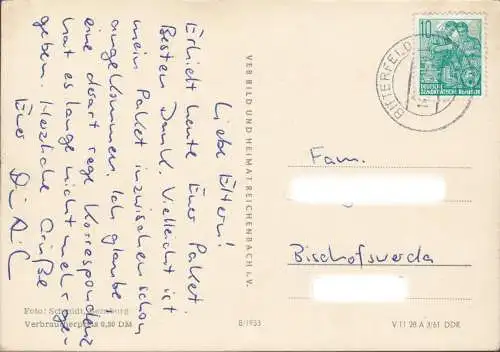 Liebe Eltern!
Erhielt heute Euer Paket
Besten Dank. Vielleicht ist
mein Paket inzwischen schon
angekommen. Ich glaube
eine derart rege Korrespondenz
hat es lange nicht mehr ge-
geben. Herzliche Grüße
Euer
VEB BILD UND HEIMAT REICHENBACH I. V.
BITTERFELD
10
DEUTSCHE
DEMOKRATISCHE REPUBLIK
Fam.
Bischofswerda
Foto: Schmidt,
Verbraucherpreis 0,20 DM
B/1933
V 11 28 A 3/61 DDR